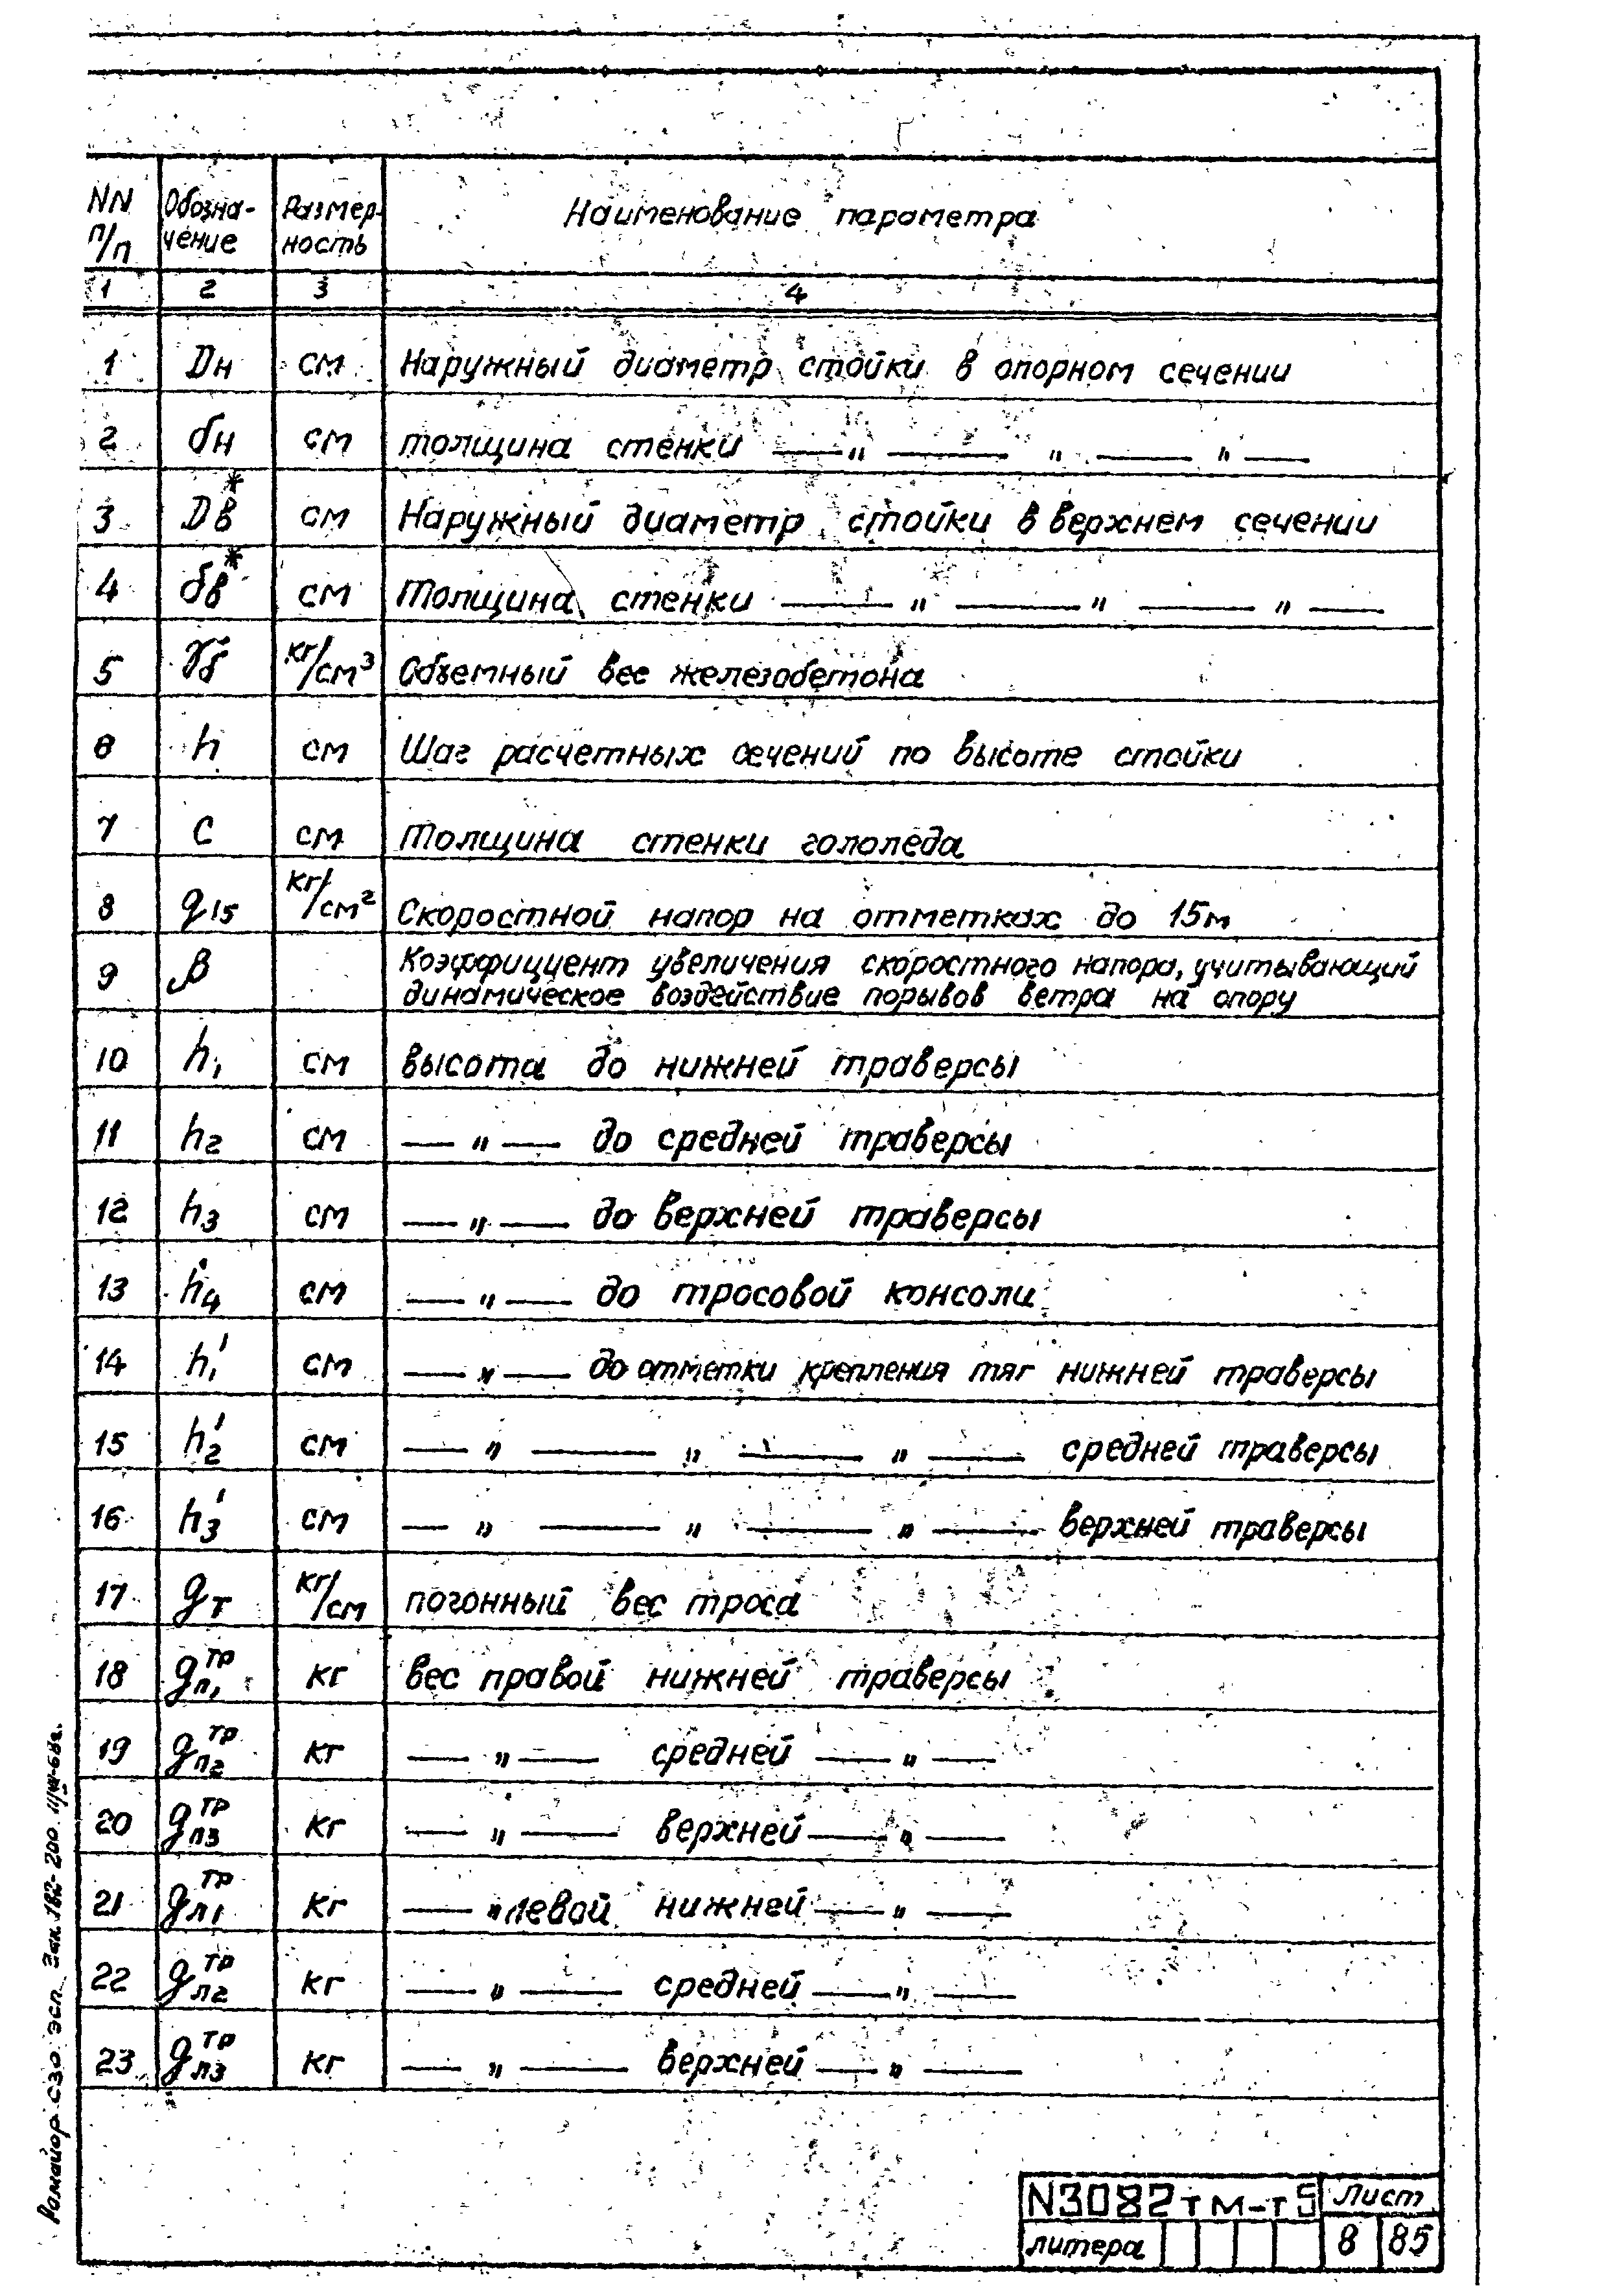 NN п/п Обозначение Размерность Наименование параметра
1 2 3 4
1 Dн см Наружный диаметр стойки в опорном сечении
2 δн см толщина стенки — " — " — " —
3 Dв* см Наружный диаметр стойки в верхнем сечении
4 δв* см Толщина стенки — " — " — " —
5 γб кг/см³ Объемный вес железобетона
6 h см Шаг расчетных сечений по высоте стойки
7 C см Толщина стенки гололеда
8 q15 кг/см² Скоростной напор на отметках до 15м
9 β Коэффициент увеличения скоростного напора, учитывающий
динамическое воздействие порывов ветра на опору
10 h₁ см высота до нижней траверсы
11 h₂ см — " — до средней траверсы
12 h₃ см — " — до верхней траверсы
13 h₄ см — " — до тросовой консоли
14 h₁' см — " — до отметки крепления тяг нижней траверсы
15 h₂' см — " — " — " — средней траверсы
16 h₃' см — " — " — " — верхней траверсы
17 gт кг/см погонный вес троса
18 gп₁ тр кг вес правой нижней траверсы
19 gп₂ тр кг — " — средней — " —
20 gп₃ тр кг — " — верхней — " —
21 gл₁ тр кг — " левой нижней — " —
22 gл₂ тр кг — " — средней — " —
23 gл₃ тр кг — " — верхней — " —
N3082тм-т5 Лист
литера 8 85
СЗО ЭСП Зак. 182-200